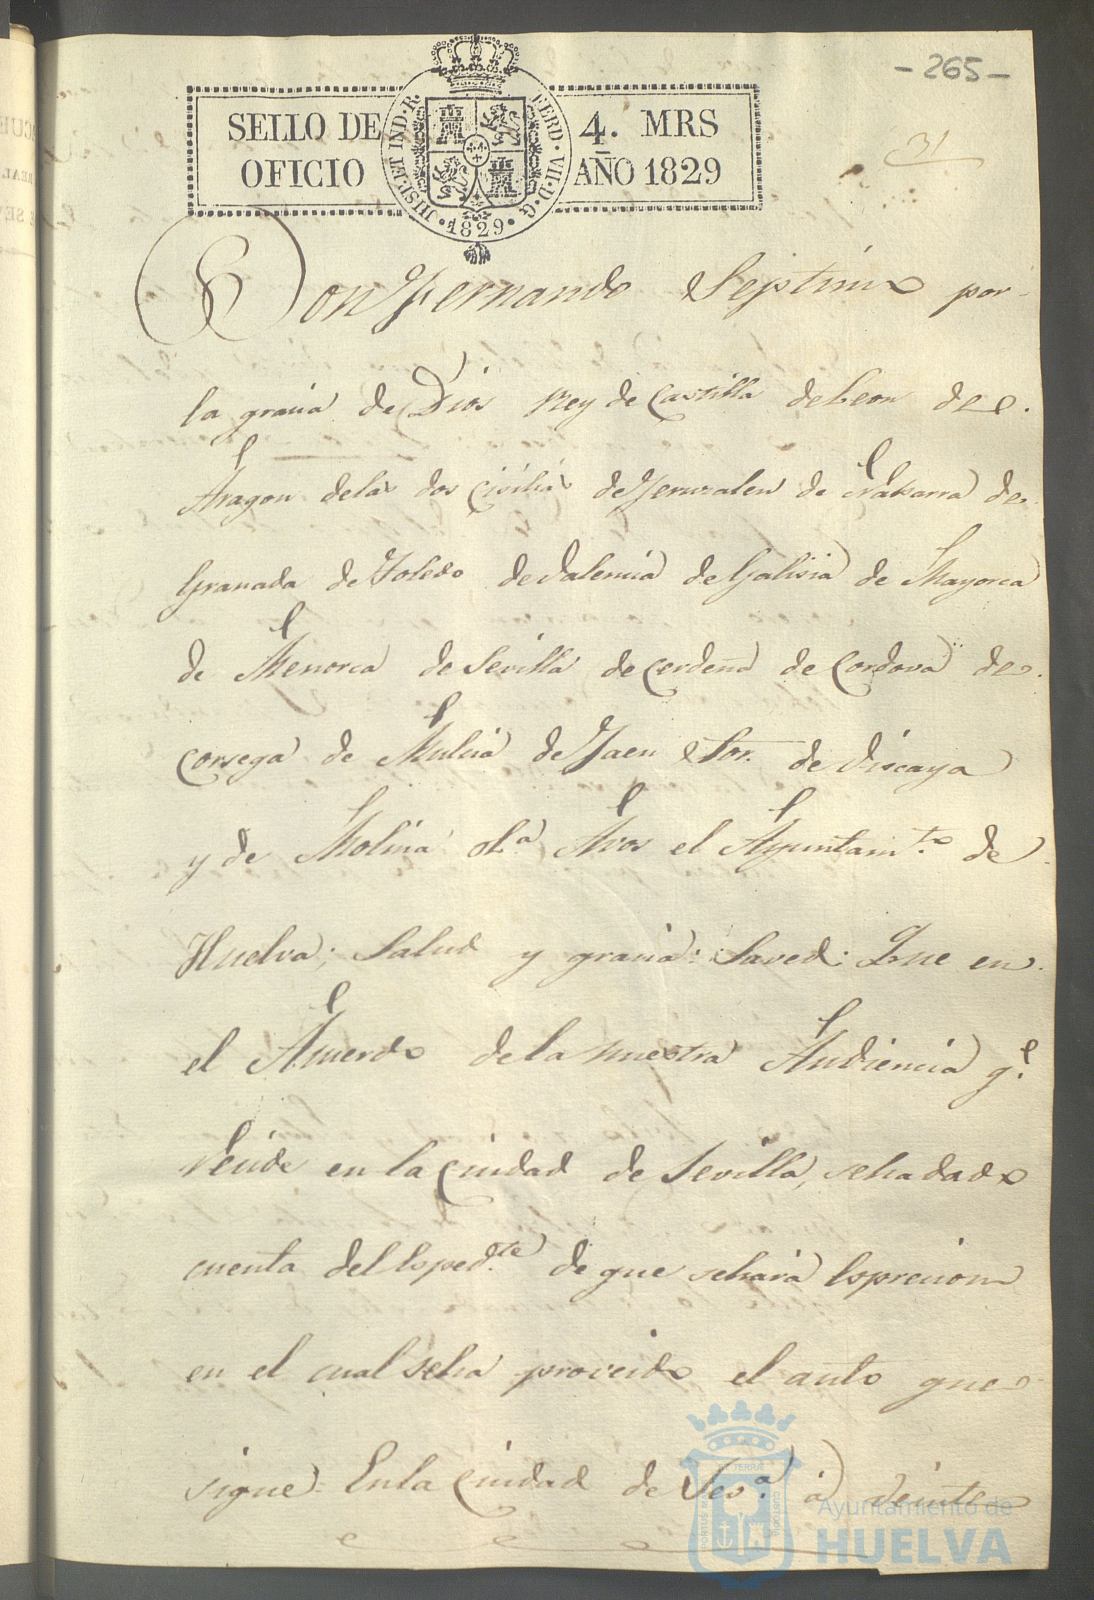 - 265 -
31
SELLO DE 4. MRS
OFICIO AÑO 1829
HISP. ET IND. R. FERD. VII. D. G. 1829
Don Fernando Septimo por
la gracia de Dios Rey de Castilla de Leon de
Aragon delas dos Cicilias de Jeruzalen de Nabarra de
Granada de Toledo de Valencia de Galisia de Mayorca
de Menorca de Sevilla de Cerdeña de Cordova de
Corsega de Mulcia de Jaen Sor. de Viscaya
y de Molina &.a A vos el Ayuntam.to de
Huelva; Salud y gracia: Saved: Que en
el Acuerdo de la nuestra Audiencia q.e
recide en la Ciudad de Sevilla, seha dado
cuenta del Esped.te de que sehará Esprecion
en el cual seha proveido el auto que
sigue = En la Ciudad de Sev.a á veinte
PORTUS MARIS ET TERRAE CUSTODIA
Ayuntamiento de
HUELVA